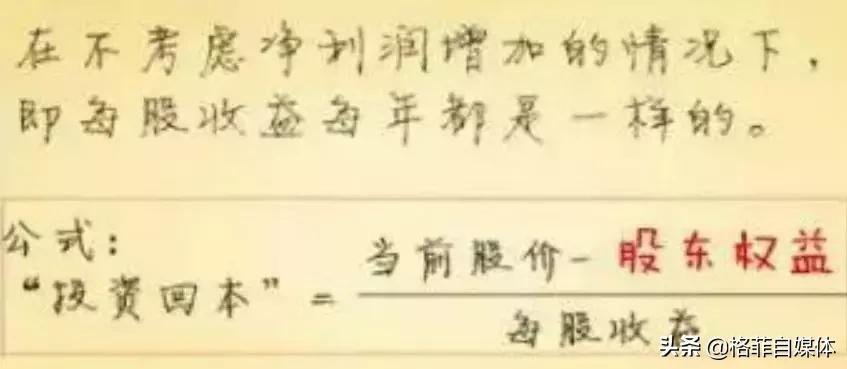 在不考虑净利润增加的情况下，
即每股收益每年都是一样的。
公式：
当前股价－股东权益
“投资回本” ＝
每股收益
头条 @格菲自媒体